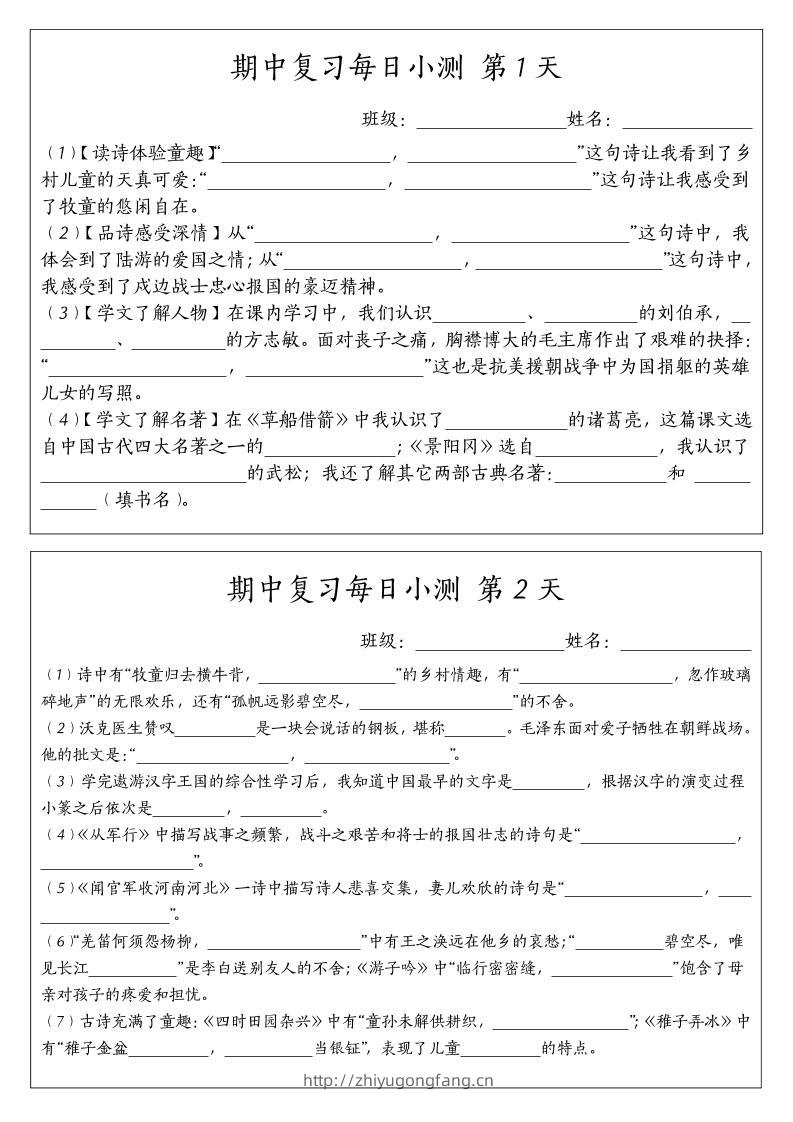 期中复习每日小测 第 1 天
班级：________________姓名：______________
（1）【读诗体验童趣】“__________________，__________________”这句诗让我看到了乡
村儿童的天真可爱：“___________________，____________________”这句诗让我感受到
了牧童的悠闲自在。
（2）【品诗感受深情】从“___________________，___________________”这句诗中，我
体会到了陆游的爱国之情；从“___________________，____________________”这句诗中，
我感受到了戍边战士忠心报国的豪迈精神。
（3）【学文了解人物】在课内学习中，我们认识__________、__________的刘伯承，__
________、__________的方志敏。面对丧子之痛，胸襟博大的毛主席作出了艰难的抉择：
“___________________，___________________”这也是抗美援朝战争中为国捐躯的英雄
儿女的写照。
（4）【学文了解名著】在《草船借箭》中我认识了_____________的诸葛亮，这篇课文选
自中国古代四大名著之一的______________；《景阳冈》选自_____________，我认识了
______________________的武松；我还了解其它两部古典名著：____________和 ______
______（填书名）。
期中复习每日小测 第 2 天
班级：________________姓名：______________
（1）诗中有“牧童归去横牛背，_________________”的乡村情趣，有“___________________，忽作玻璃
碎地声”的无限欢乐，还有“孤帆远影碧空尽，___________________”的不舍。
（2）沃克医生赞叹__________是一块会说话的钢板，堪称________。毛泽东面对爱子牺牲在朝鲜战场。
他的批文是：“___________________，__________________”。
（3）学完遨游汉字王国的综合性学习后，我知道中国最早的文字是_________，根据汉字的演变过程
小篆之后依次是_________，__________。
（4）《从军行》中描写战事之频繁，战斗之艰苦和将士的报国壮志的诗句是“___________________，
___________________”。
（5）《闻官军收河南河北》一诗中描写诗人悲喜交集，妻儿欢欣的诗句是“_________________，____
________________”。
（6）“羌笛何须怨杨柳，___________________”中有王之涣远在他乡的哀愁；“___________碧空尽，唯
见长江___________”是李白送别友人的不舍；《游子吟》中“临行密密缝，_______________”饱含了母
亲对孩子的疼爱和担忧。
（7）古诗充满了童趣：《四时田园杂兴》中有“童孙未解供耕织，_________________”；《稚子弄冰》中
有“稚子金盆__________，___________当银钲”，表现了儿童__________的特点。
http://zhiyugongfang.cn